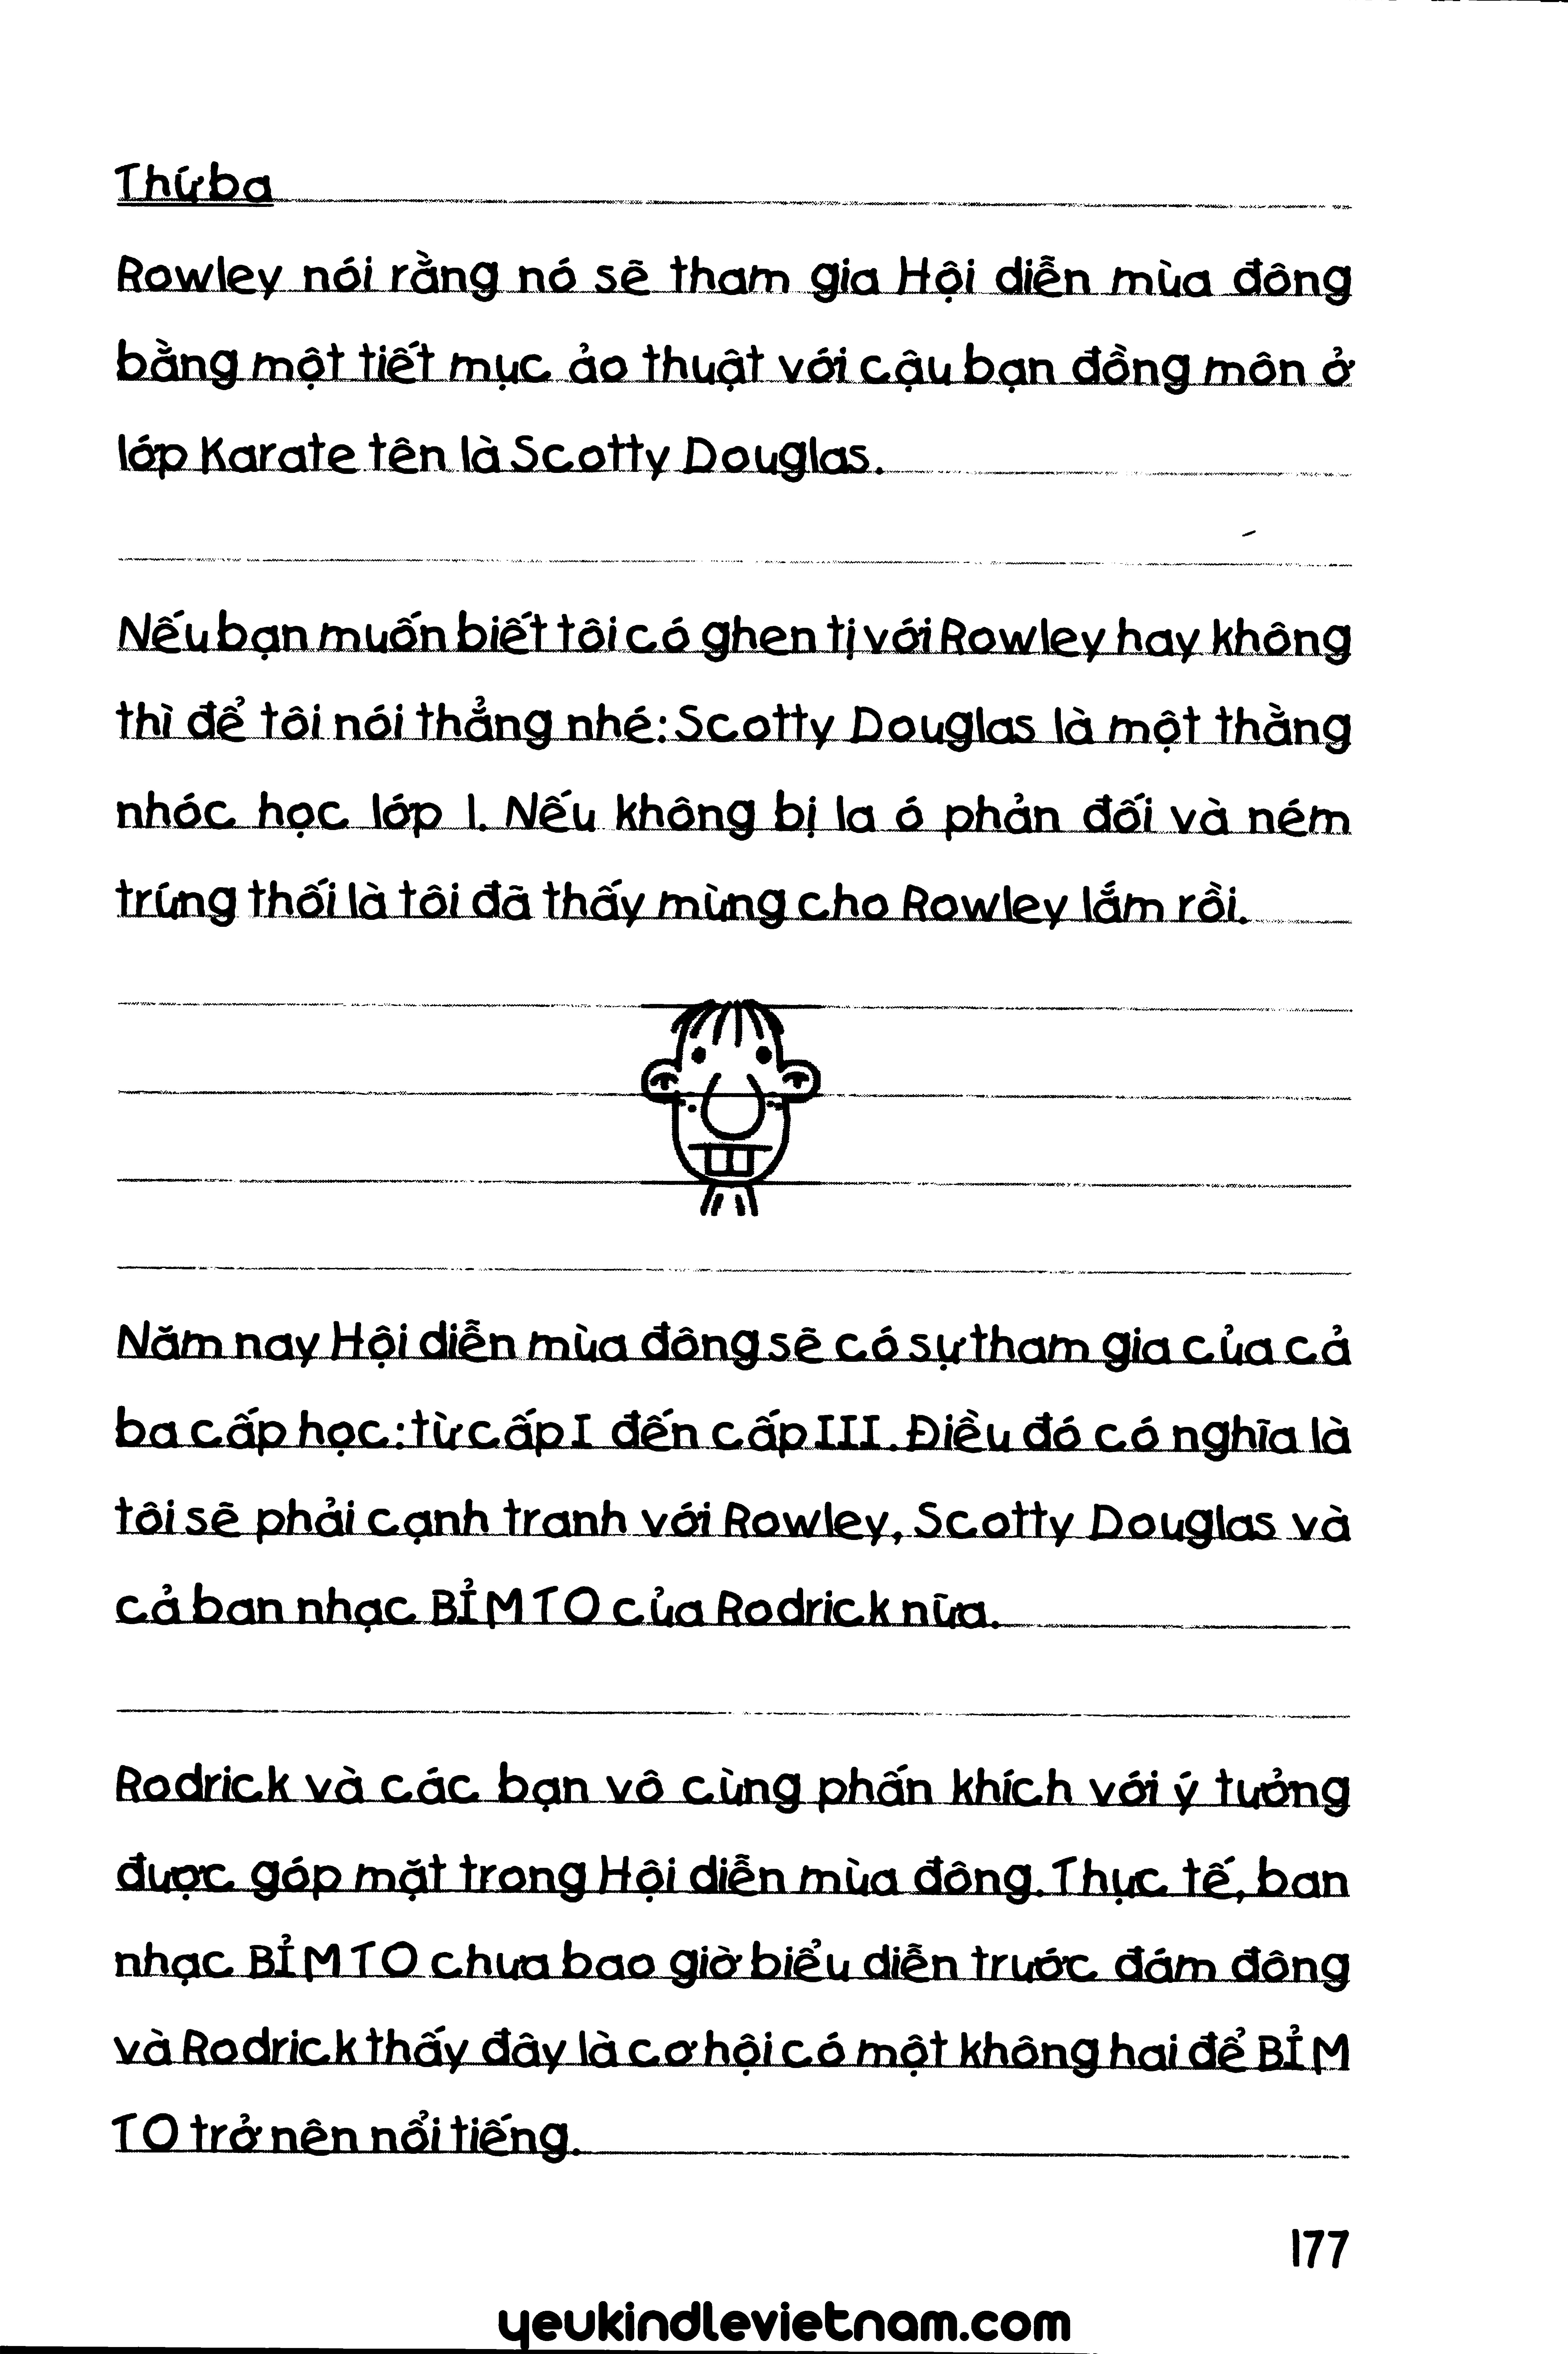 Thứ ba
Rowley nói rằng nó sẽ tham gia Hội diễn mùa đông
bằng một tiết mục ảo thuật với cậu bạn đồng môn ở
lớp Karate tên là Scotty Douglas.
Nếu bạn muốn biết tôi có ghen tị với Rowley hay không
thì để tôi nói thẳng nhé: Scotty Douglas là một thằng
nhóc học lớp 1. Nếu không bị la ó phản đối và ném
trứng thối là tôi đã thấy mừng cho Rowley lắm rồi.
Năm nay Hội diễn mùa đông sẽ có sự tham gia của cả
ba cấp học: từ cấp I đến cấp III. Điều đó có nghĩa là
tôi sẽ phải cạnh tranh với Rowley, Scotty Douglas và
cả ban nhạc BỈM TO của Rodrick nữa.
Rodrick và các bạn vô cùng phấn khích với ý tưởng
được góp mặt trong Hội diễn mùa đông. Thực tế, ban
nhạc BỈM TO chưa bao giờ biểu diễn trước đám đông
và Rodrick thấy đây là cơ hội có một không hai để BỈM
TO trở nên nổi tiếng.
177
yeukindlevietnam.com